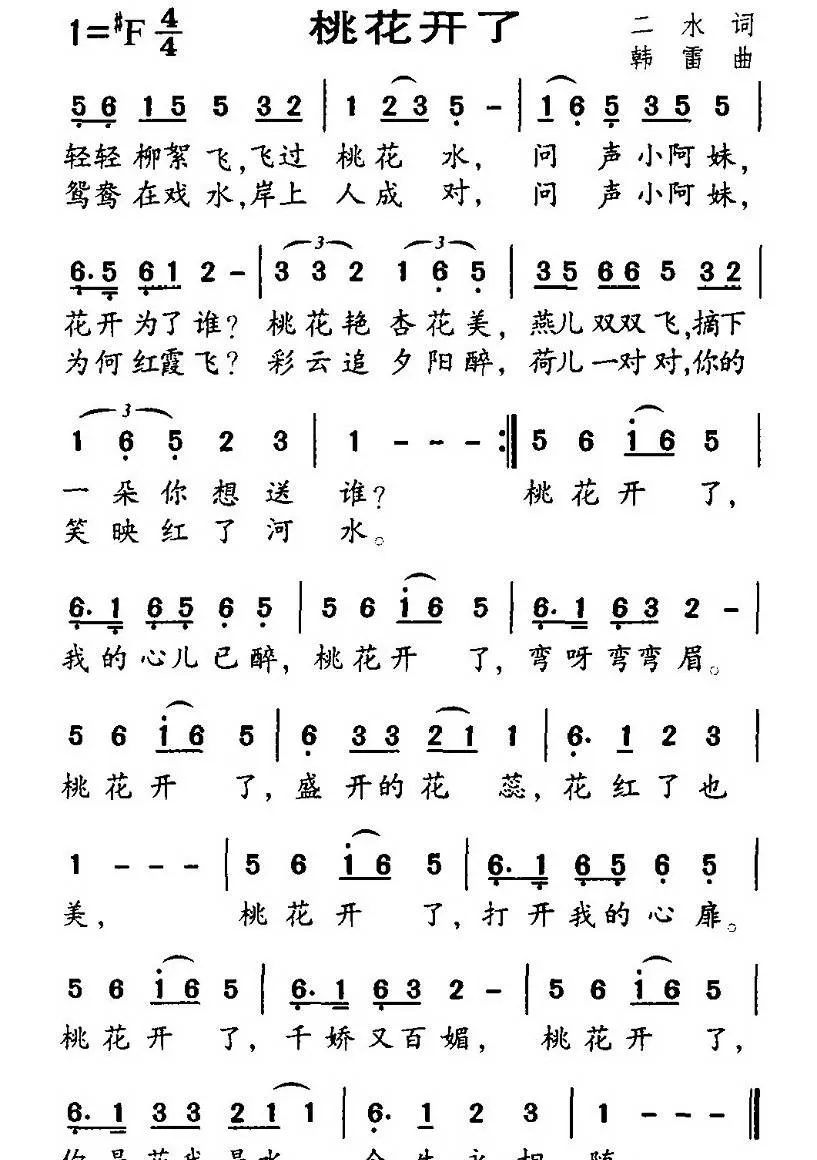 1=♯F 4/4 桃花开了 二水词
韩雷曲
5 6 1 5 5 3 2 | 1 2 3 5 - | 1 6 5 3 5 5 |
轻轻柳絮飞,飞过 桃花 水, 问 声小阿妹,
鸳鸯在戏水,岸上 人成 对, 问 声小阿妹,
6. 5 6 1 2 - | 3 3 2 1 6 5 | 3 5 6 6 5 3 2 |
花开为了谁? 桃花艳 杏花美, 燕儿双双飞,摘下
为何红霞飞? 彩云追 夕阳醉, 荷儿一对对,你的
1 6 5 2 3 | 1 - - - :‖ 5 6 i 6 5 |
一朵你想送 谁? 桃花开 了,
笑映红了河 水。
6. 1 6 5 6 5 | 5 6 i 6 5 | 6. 1 6 3 2 - |
我的心儿已醉, 桃花开 了, 弯呀弯弯眉。
5 6 i 6 5 | 6 3 3 2 1 1 | 6. 1 2 3 |
桃花开 了, 盛开的花 蕊, 花红了也
1 - - - | 5 6 i 6 5 | 6. 1 6 5 6 5 |
美, 桃花开 了, 打开我的心扉。
5 6 i 6 5 | 6. 1 6 3 2 - | 5 6 i 6 5 |
桃花开 了, 千娇又百媚, 桃花开 了,
6. 1 3 3 2 1 1 | 6. 1 2 3 | 1 - - - ‖
你是花我是水 今生永相随